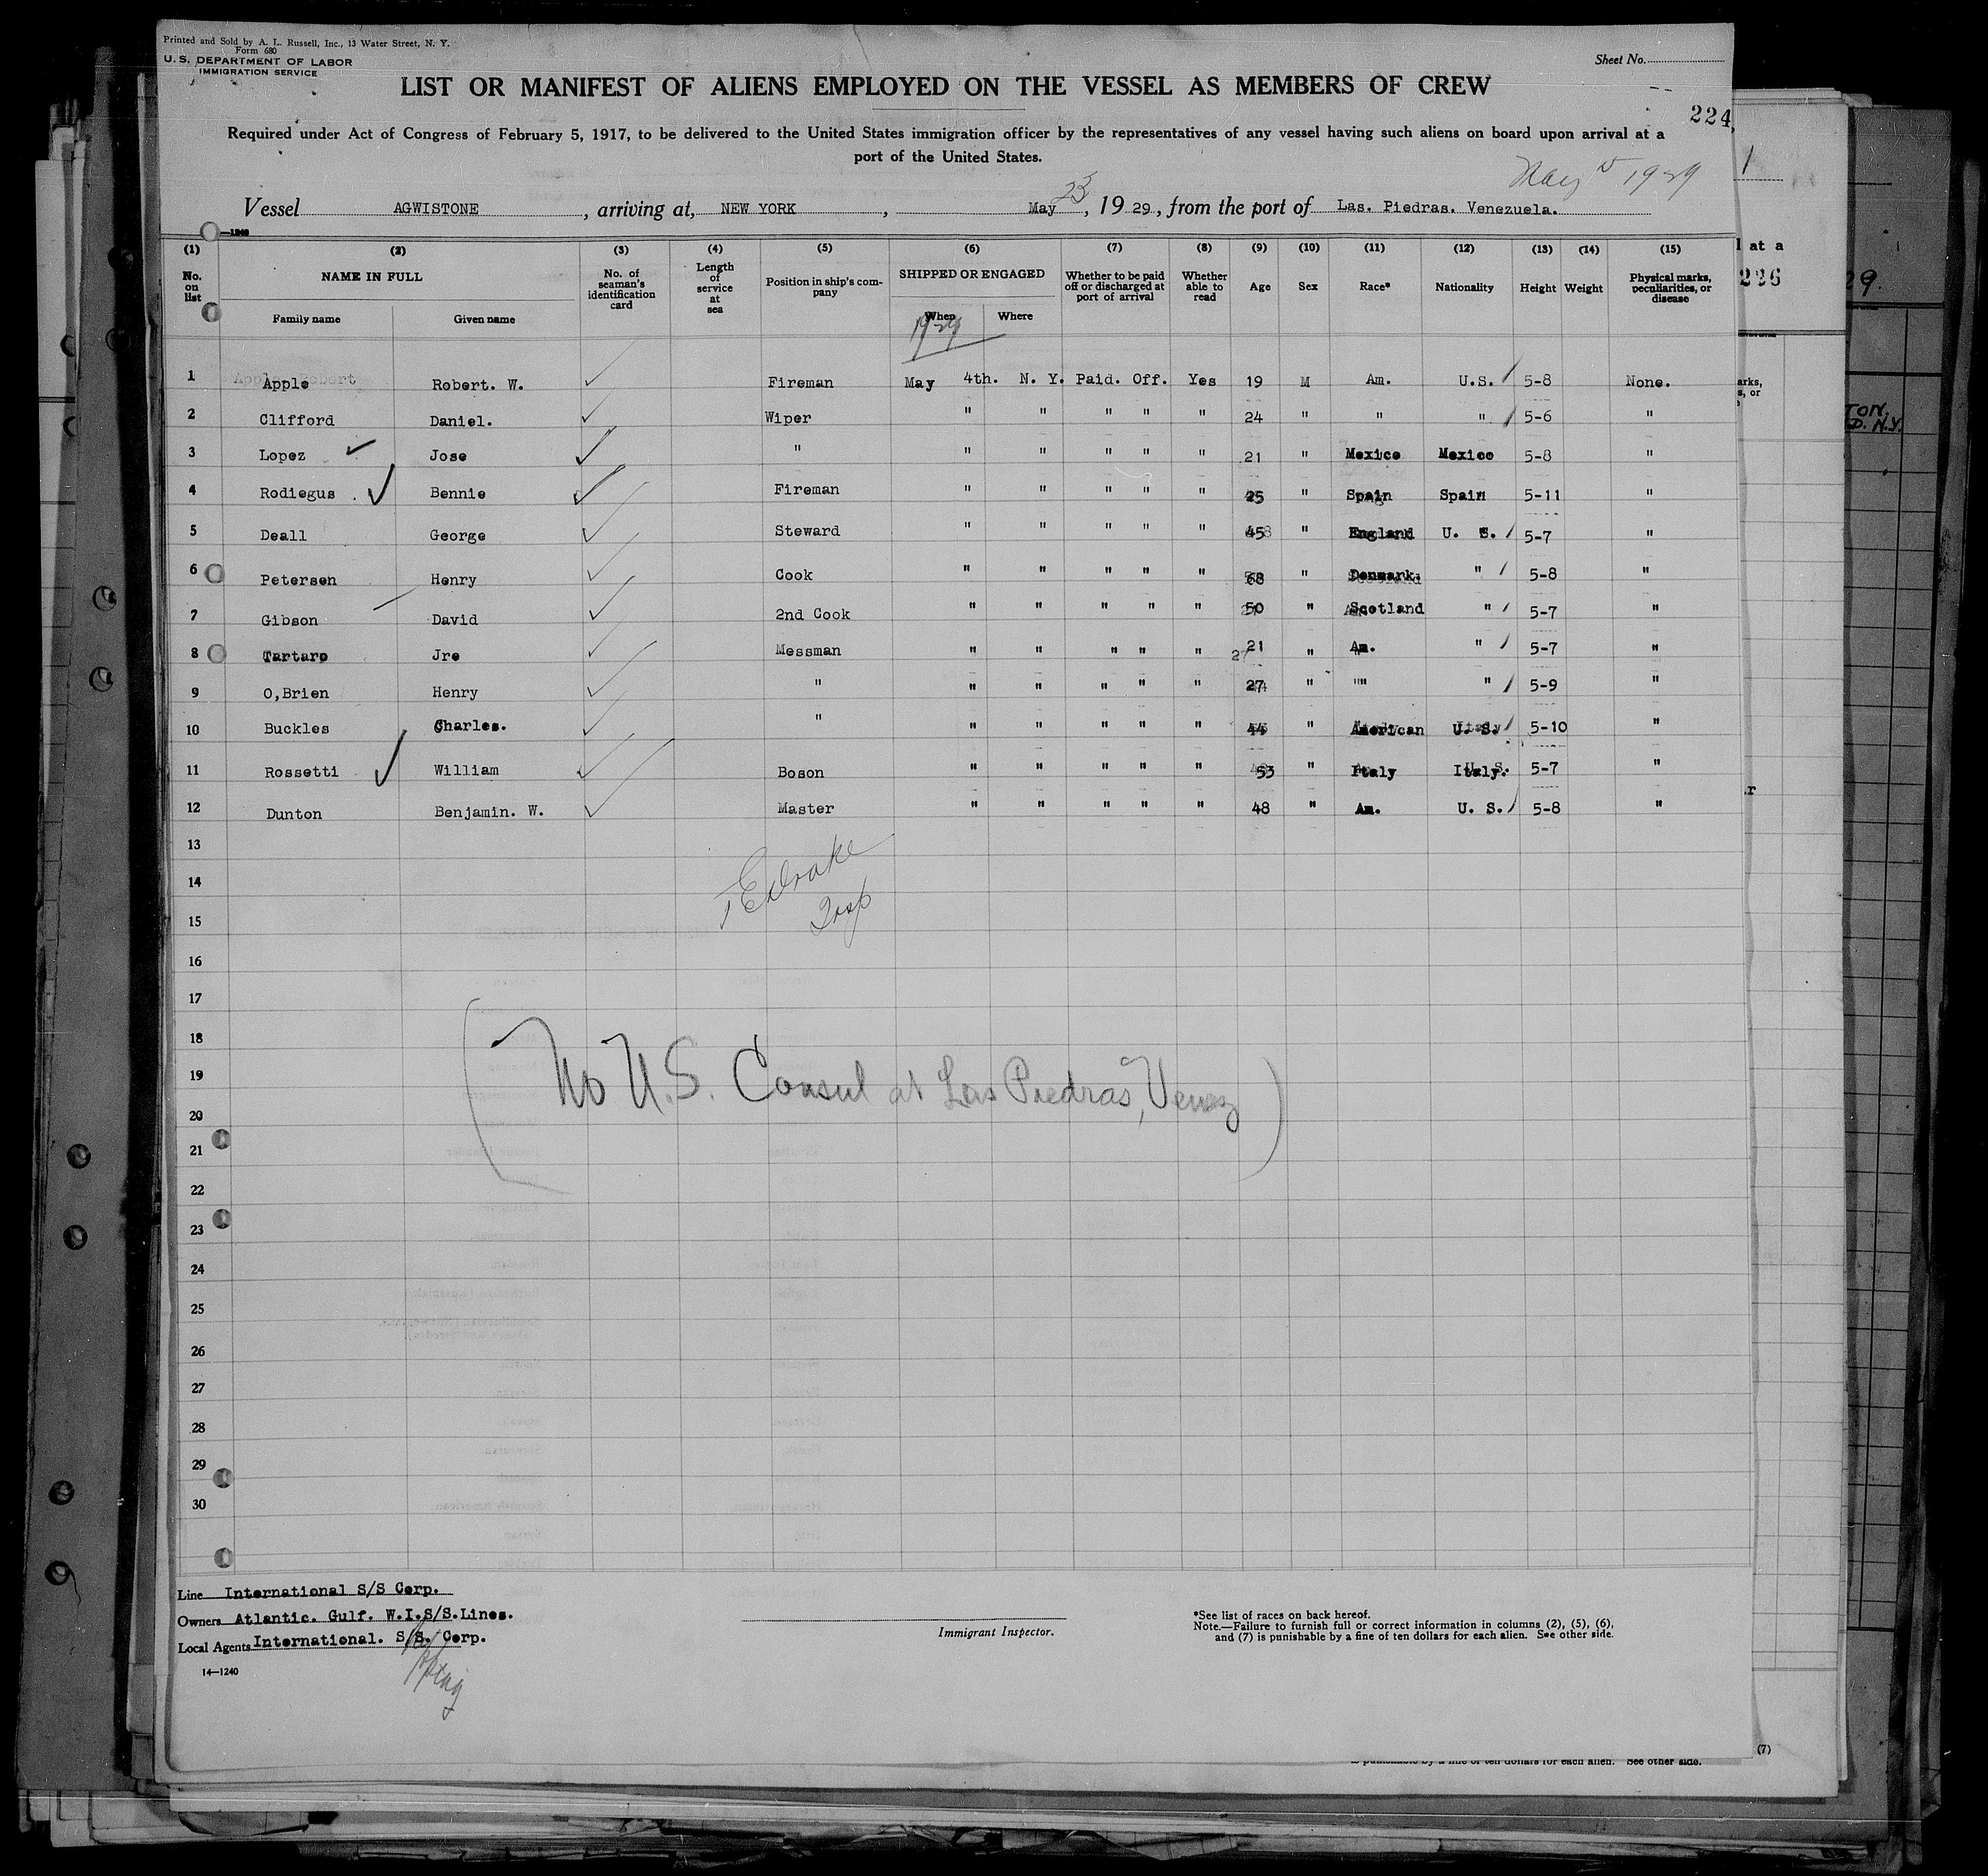 Printed and Sold by A. L. Russell, Inc., 13 Water Street, N. Y.
Form 680
U. S. DEPARTMENT OF LABOR
IMMIGRATION SERVICE
Sheet No.
LIST OR MANIFEST OF ALIENS EMPLOYED ON THE VESSEL AS MEMBERS OF CREW
224
Required under Act of Congress of February 5, 1917, to be delivered to the United States immigration officer by the representatives of any vessel having such aliens on board upon arrival at a
port of the United States.
May 1929
Vessel AGWISTONE, arriving at, NEW YORK, May 23, 1929, from the port of Las. Piedras. Venezuela.
(1) (2) (3) (4) (5) (6) (7) (8) (9) (10) (11) (12) (13) (14) (15)
No. on list NAME IN FULL No. of seaman's identification card Length of service at sea Position in ship's company SHIPPED OR ENGAGED Whether to be paid off or discharged at port of arrival Whether able to read Age Sex Race* Nationality Height Weight Physical marks, peculiarities, or disease
Family name Given name When Where
1929
1 Apple Robert. W. Fireman May 4th. N. Y. Paid. Off. Yes 19 M Am. U.S. 5-8 None.
2 Clifford Daniel. Wiper " " " " " 24 " " " 5-6 "
3 Lopez Jose " " " " " " 21 " Mexico Mexico 5-8 "
4 Rodiegus . Bennie Fireman " " " " " 25 " Spain Spain 5-11 "
5 Deall George Steward " " " " " 45 " England U. S. 5-7 "
6 Petersen Henry Cook " " " " " 68 " Denmark. " 5-8 "
7 Gibson David 2nd Cook " " " " " 50 " Scotland " 5-7 "
8 Tartaro Jre Messman " " " " " 21 " Am. " 5-7 "
9 O,Brien Henry " " " " " " 27 " " " 5-9 "
10 Buckles Charles. " " " " " " 44 " American U. S. 5-10 "
11 Rossetti William Boson " " " " " 53 " Italy Italy. 5-7 "
12 Dunton Benjamin. W. Master " " " " " 48 " Am. U. S. 5-8 "
13
14
15
Insp
16
17
18
19
(No U.S. Consul at Las Piedras, Venez)
20
21
22
23
24
25
26
27
28
29
30
Line International S/S Corp.
Owners Atlantic. Gulf. W.I.S/S.Lines.
Local Agents International. S/S. Corp.
14—1240
Immigrant Inspector.
*See list of races on back hereof.
Note.—Failure to furnish full or correct information in columns (2), (5), (6),
and (7) is punishable by a fine of ten dollars for each alien. See other side.
226
is punishable by a fine of ten dollars for each alien. See other side.
(7)